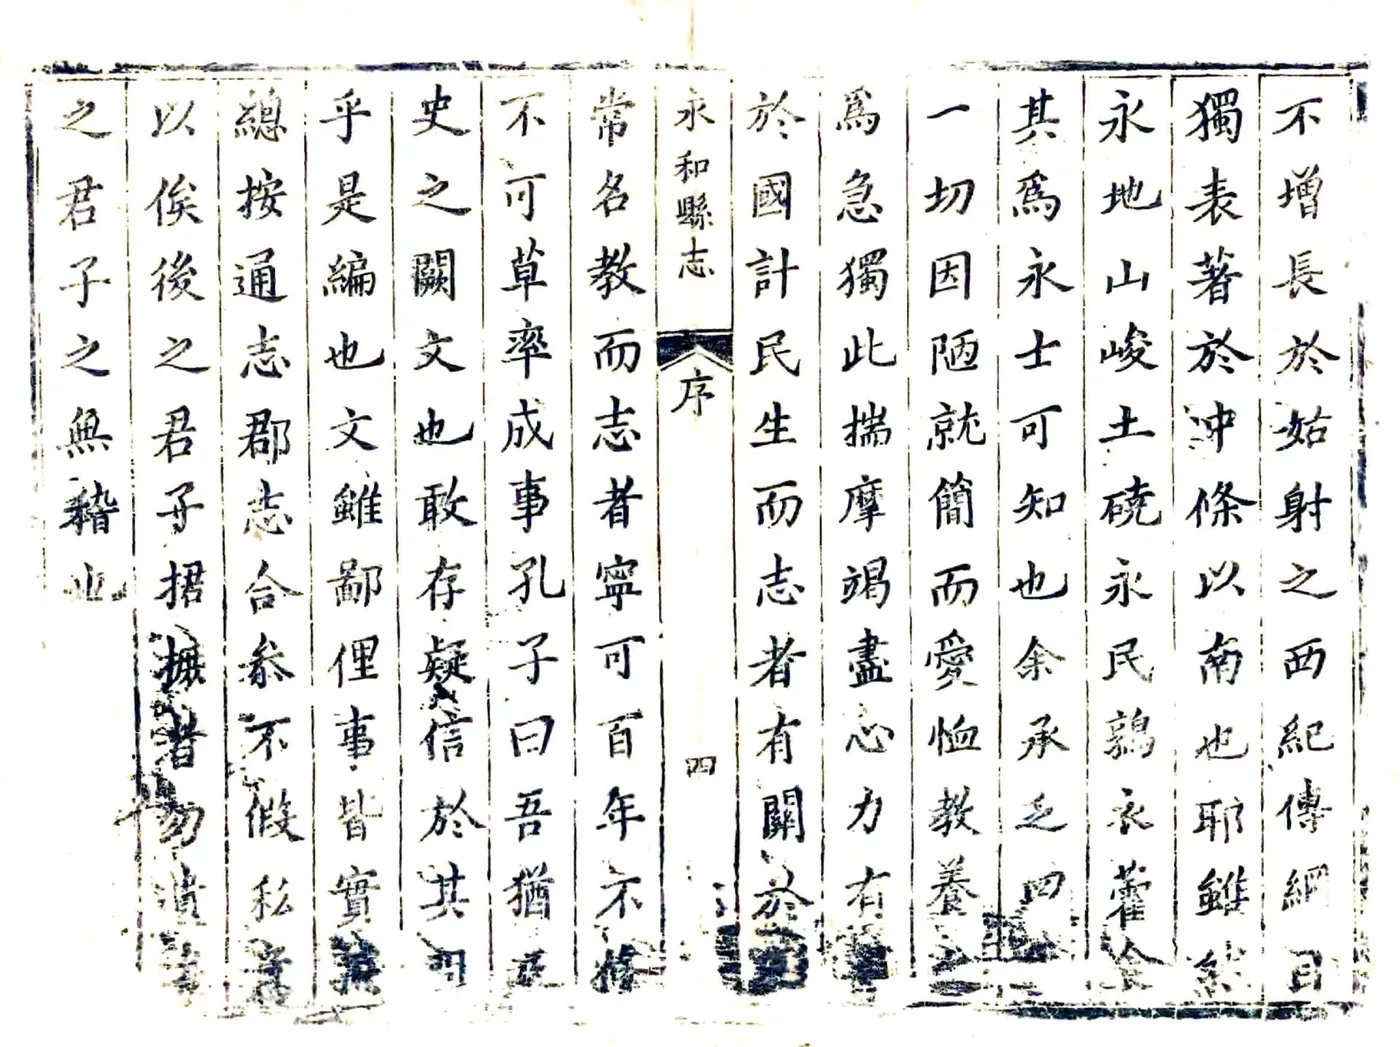 不增長於姑射之西紀傳綱目
獨表著於冲條以南也耶雖然
永地山峻土磽永民鶉衣藿食
其爲永士可知也余承乏四
一切因陋就簡而愛恤教養之
爲急獨此揣摩竭盡心力有
於國計民生而志者有關於
永和縣志
序
四
常名教而志者寧可百年不修
不可草率成事孔子曰吾猶及
史之闕文也敢存疑信於其間
乎是編也文雖鄙俚事皆實
總按通志郡志合叅不假私
以俟後之君子捃摭者勿
之君子之無稽也